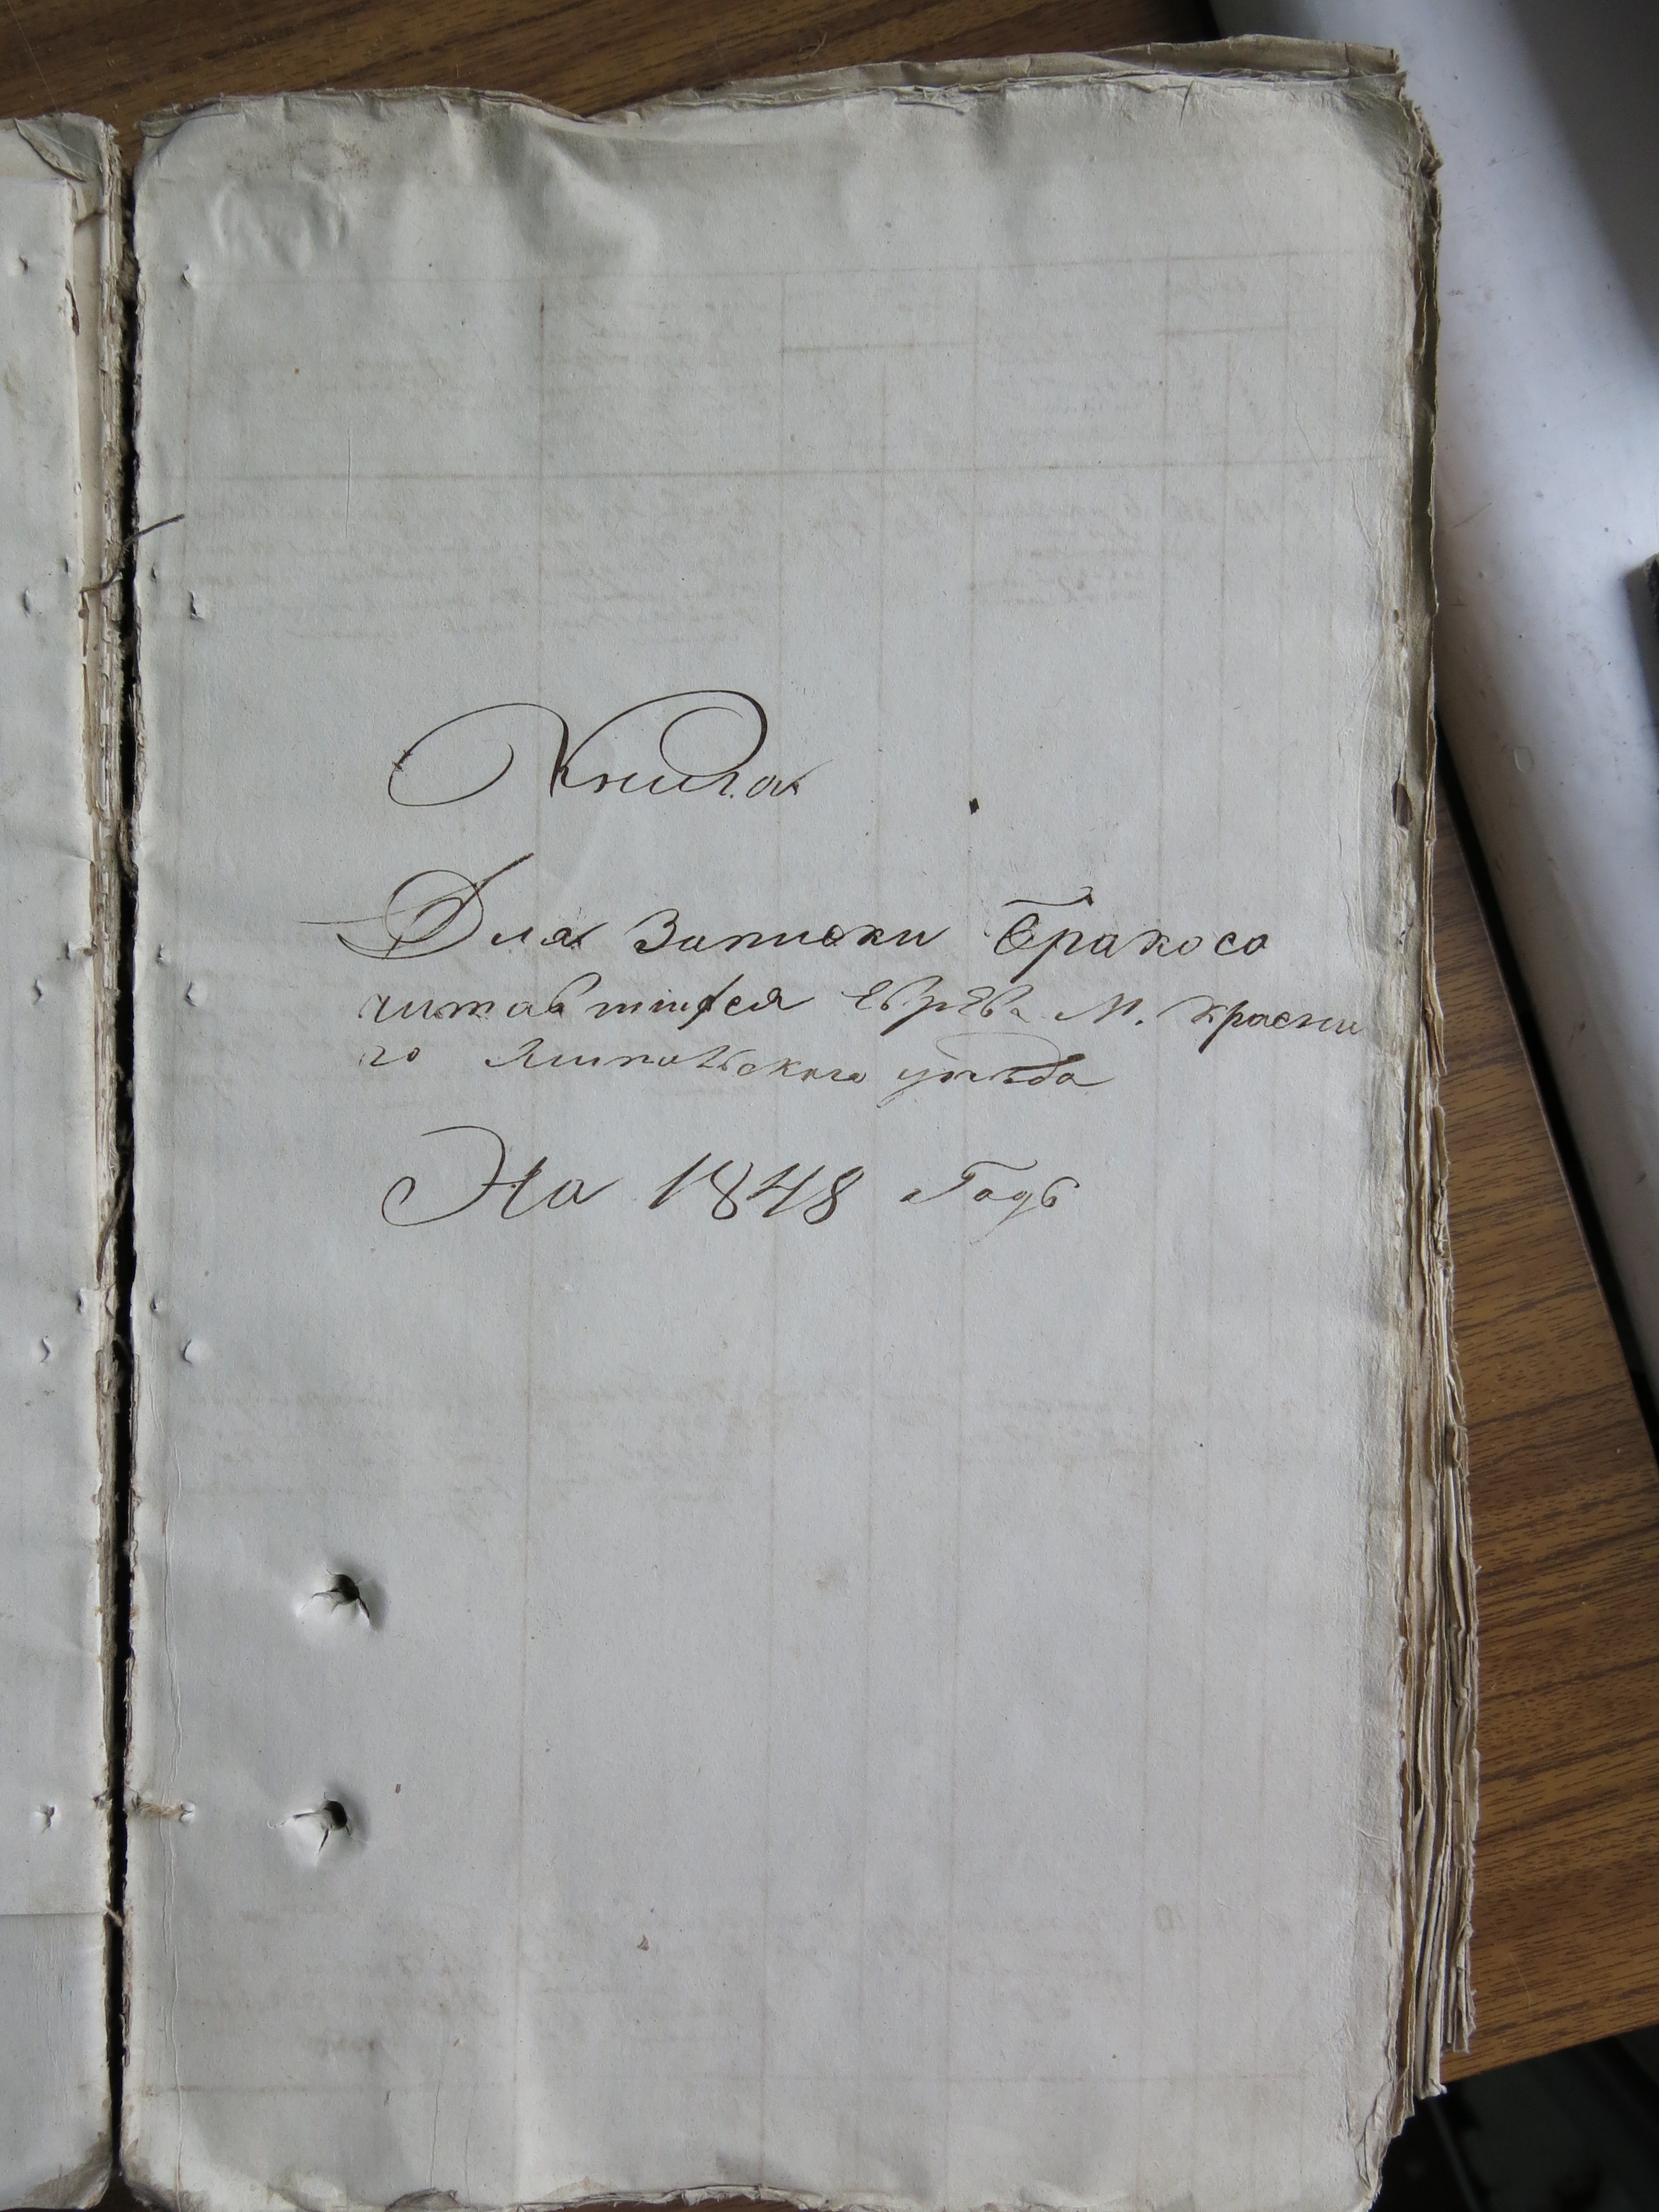 Книга
Для записки Бракосо
читавшихся Евреев М. Красни
го Липовецкого уезда
На 1848 Годъ